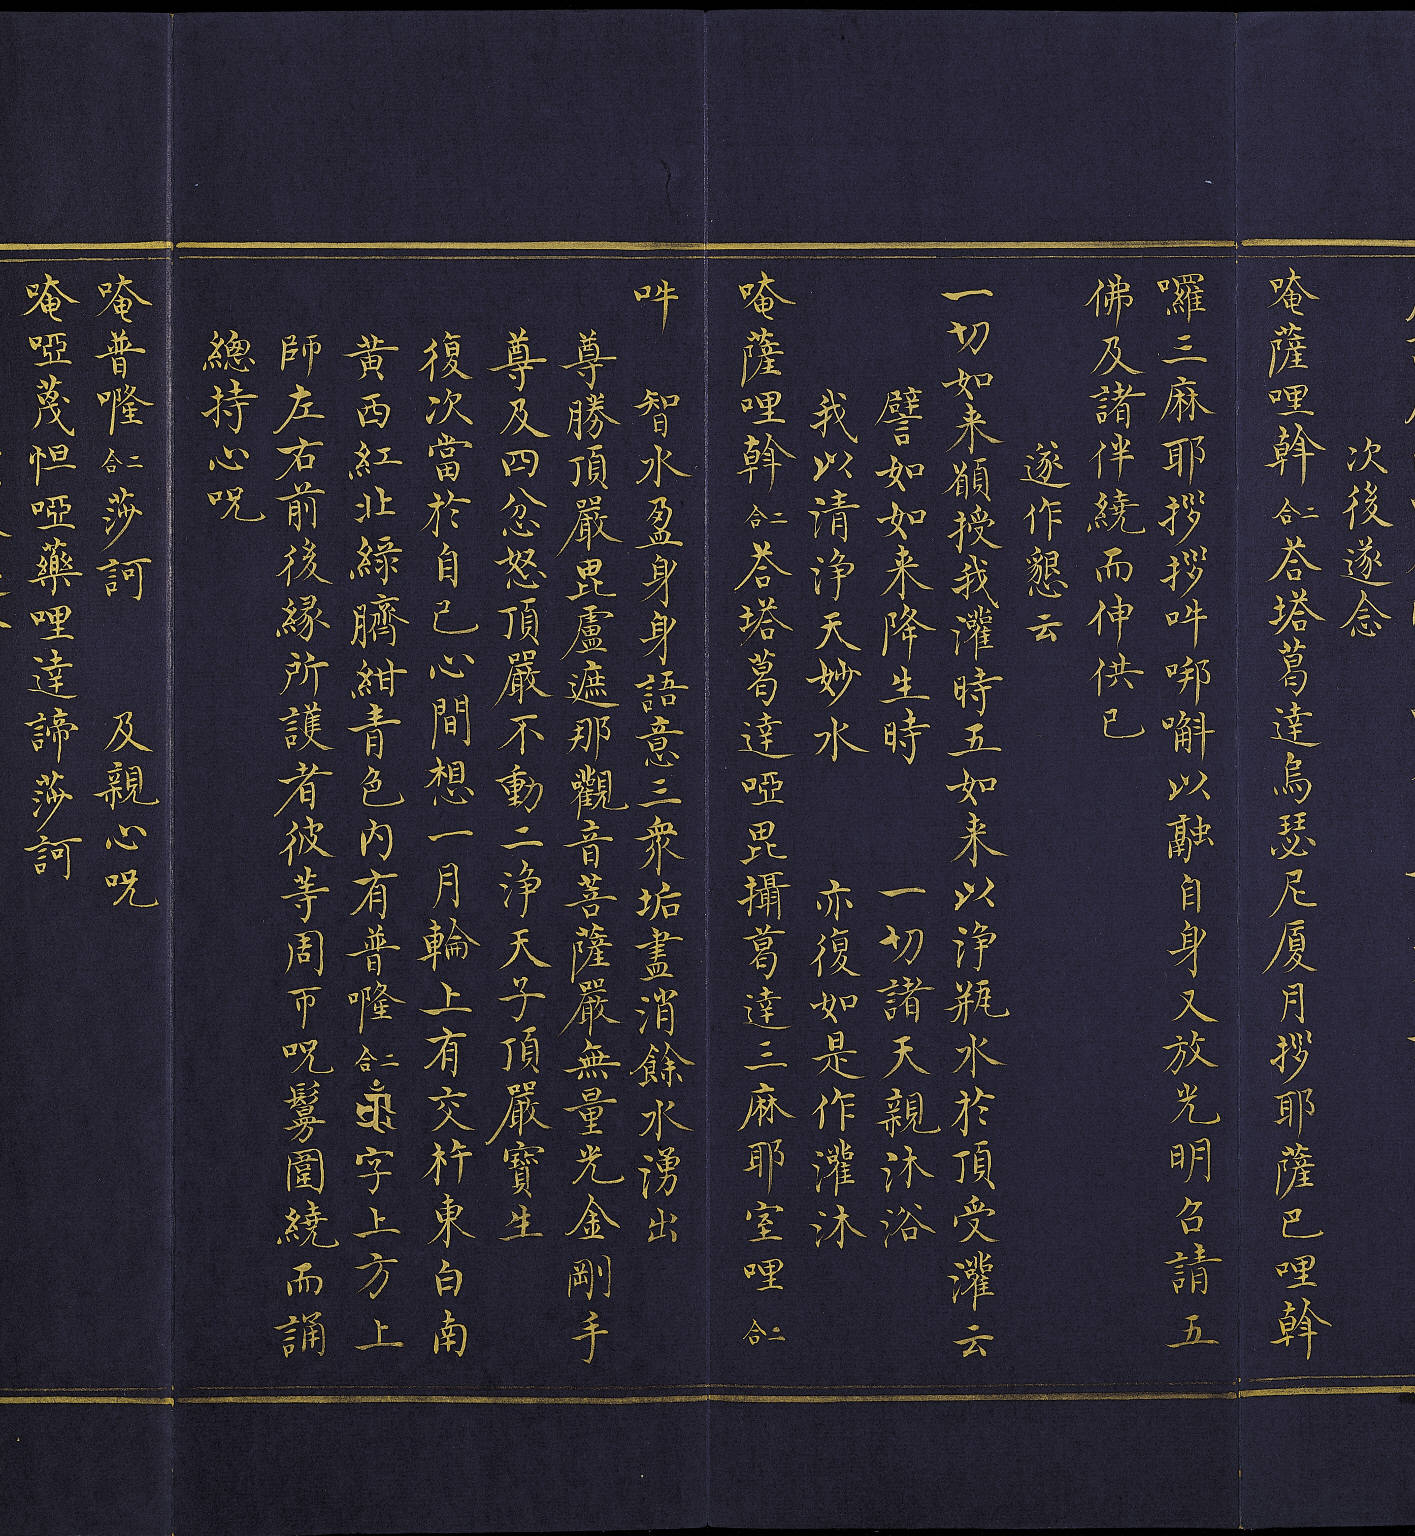 次後遂念
唵薩哩斡二合荅塔葛達烏瑟尼厦月拶耶薩巴哩斡
囉三麻耶拶拶吽㖿嚩以融自身又放光明召請五
佛及諸伴繞而伸供已
遂作懇云
一切如来願授我灌時五如来以浄瓶水於頂受灌云
譬如如来降生時 一切諸天親沐浴
我以清浄天妙水 亦復如是作灌沐
唵薩哩斡二合荅塔葛達啞毘攝葛達三麻耶室哩二合
吽 智水盈身身語意三衆垢盡消餘水湧出
尊勝頂嚴毘盧遮那觀音菩薩嚴無量光金剛手
尊及四忿怒頂嚴不動二浄天子頂嚴寶生
復次當於自己心間想一月輪上有交杵東白南
黄西紅北緑臍紺青色内有普𠹌二合字上方上
師左右前後縁所護者彼等周帀呪鬘圍繞而誦
總持心呪
唵普𠹌二合莎訶 及親心呪
唵啞蔑怛啞藥哩達諦莎訶